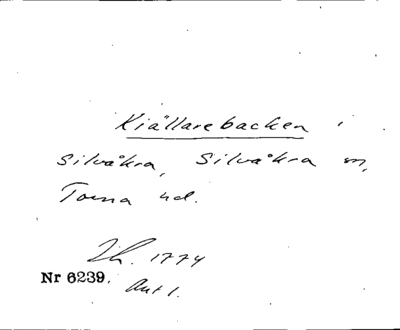 Kiällarebacken i
Silvåkra, Silvåkra sn,
Torna hd.
1774
Nr 6239.
Akt 1.